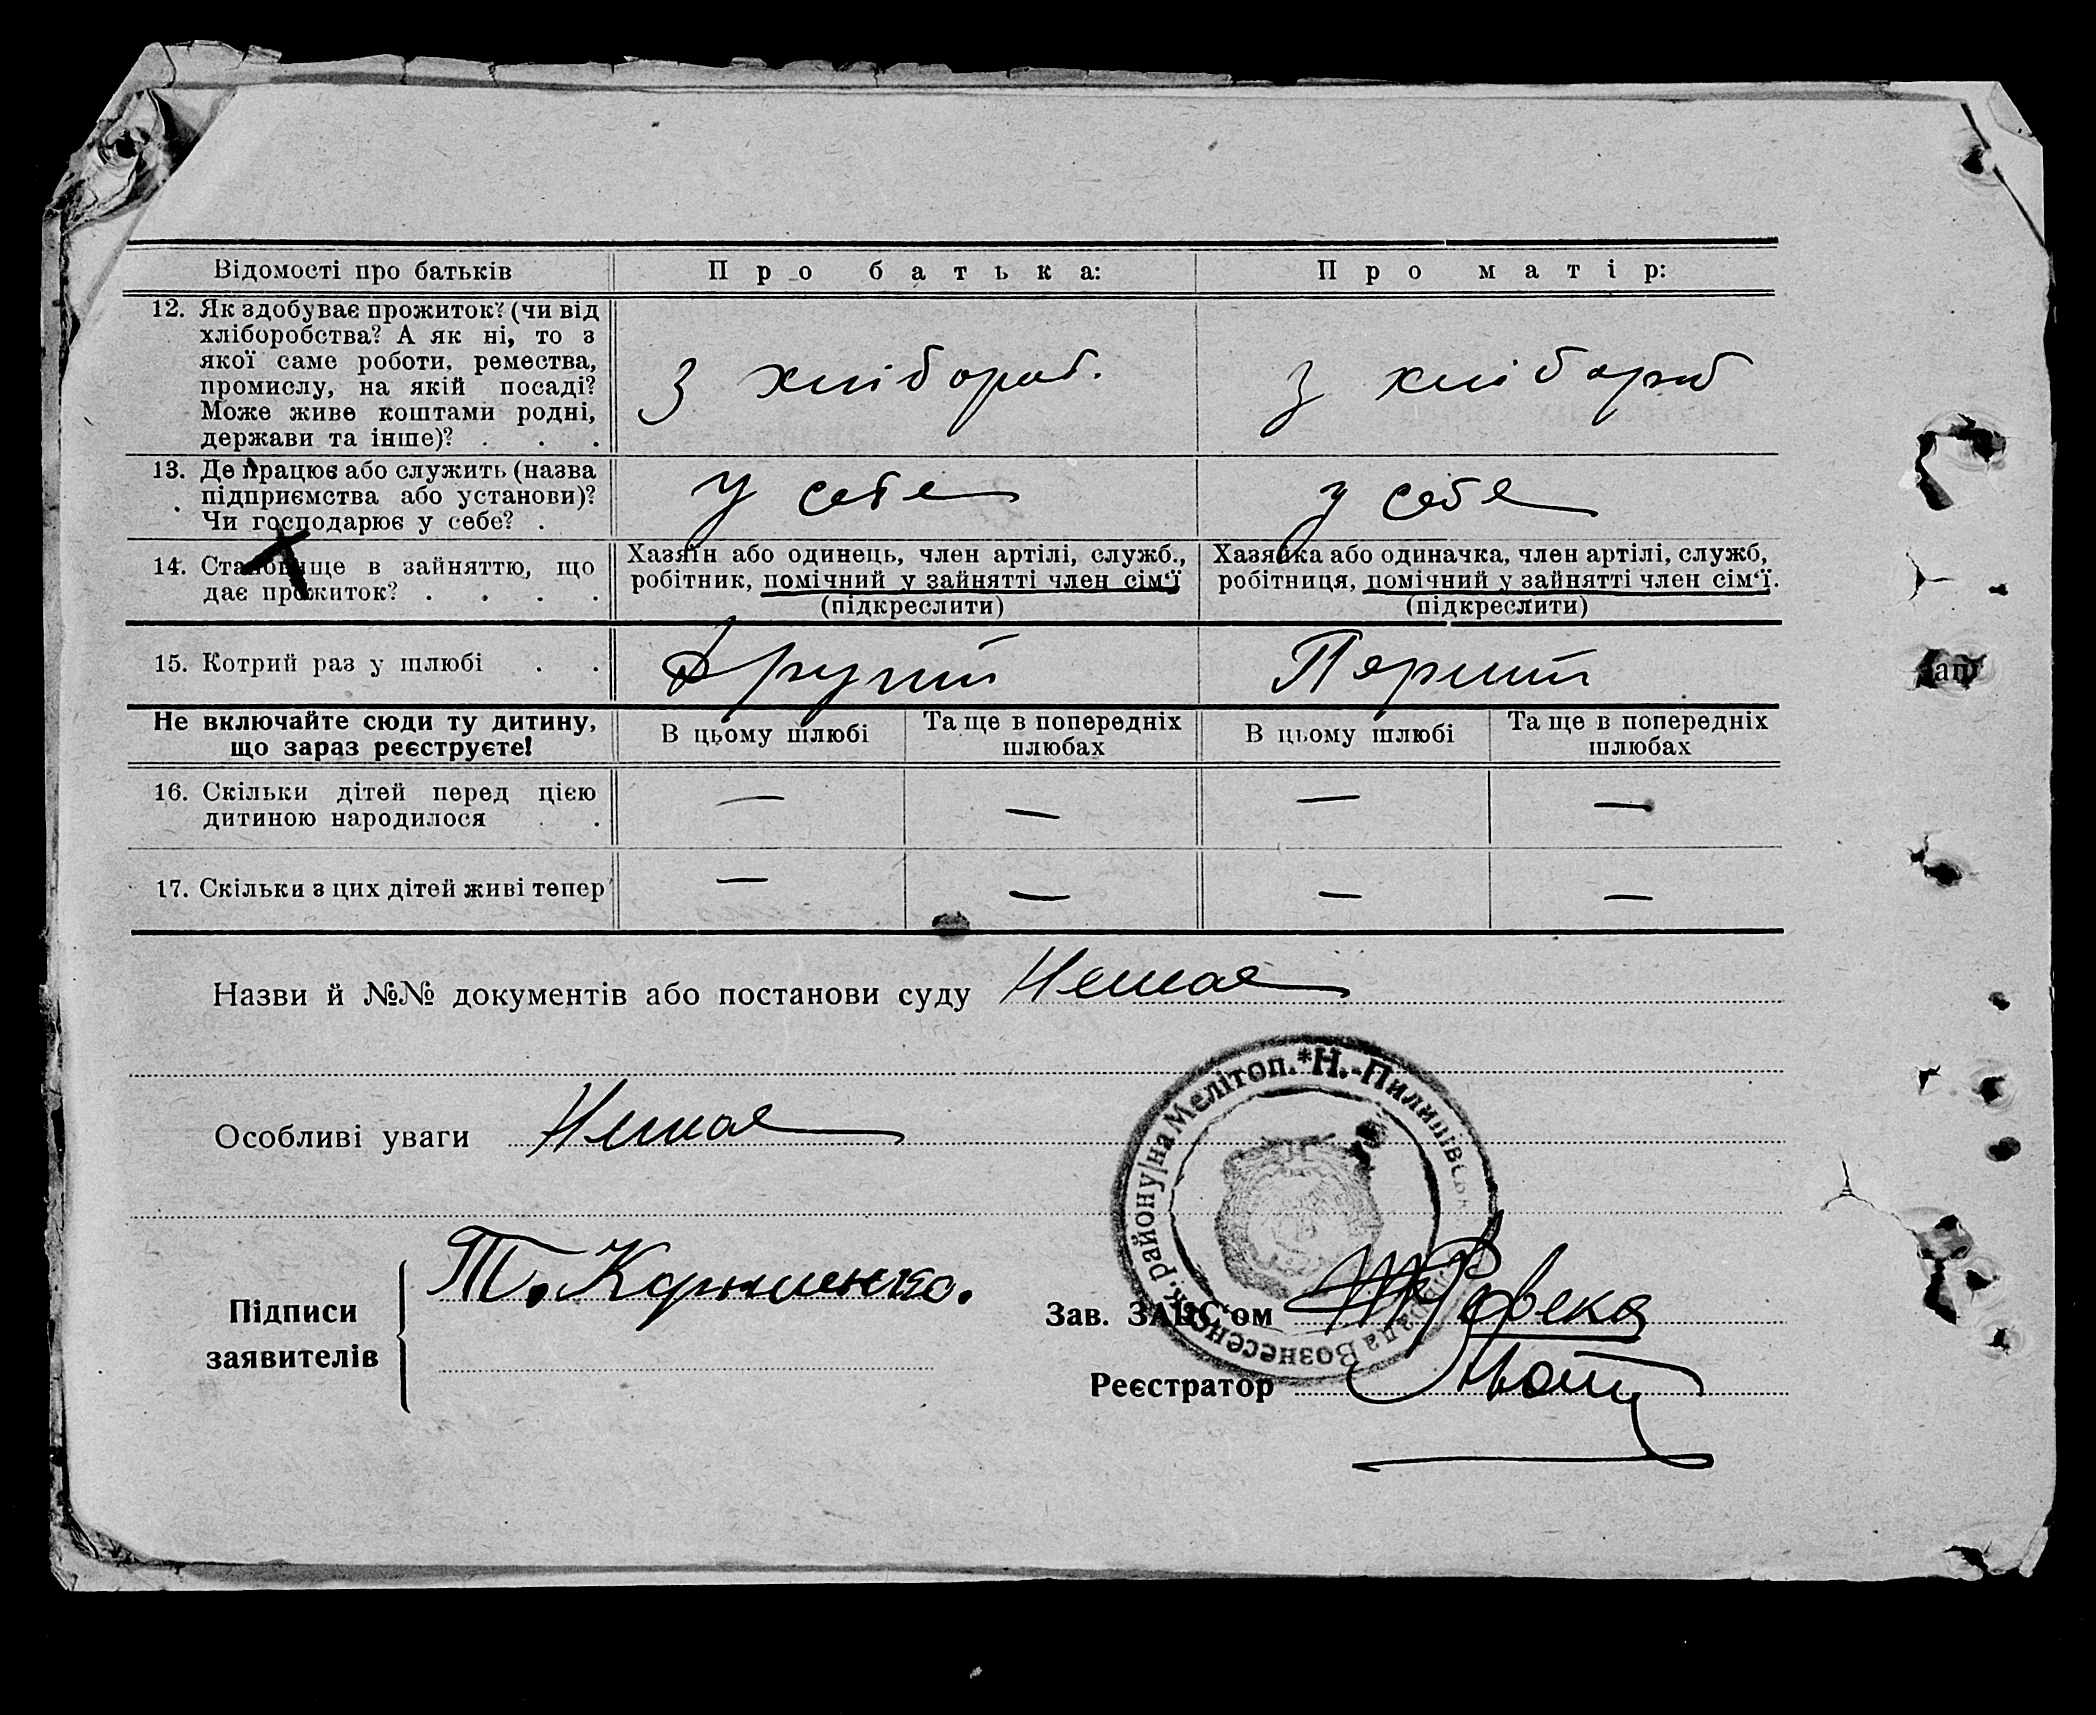 Відомості про батьків
Про батька:
Про матір:
12. Як здобуває прожиток? (чи від
хліборобства? А як ні, то з
якої саме роботи, ремества,
промислу, на якій посаді?
Може живе коштами родні,
держави та інше)? . . .
З хлібороб.
З хлібороб
13. Де працює або служить (назва
підприємства або установи)?
Чи господарює у себе? .
У себе
у себе
14. Становище в зайняттю, що
дає прожиток? . . . .
Хазяїн або одинець, член артілі, служб.,
робітник, помічний у зайнятті член сім'ї
(підкреслити)
Хазяйка або одиначка, член артілі, служб,
робітниця, помічний у зайнятті член сім'ї.
(підкреслити)
15. Котрий раз у шлюбі . .
Другий
Перший
Не включайте сюди ту дитину,
що зараз реєструєте!
В цьому шлюбі
Та ще в попередніх
шлюбах
В цьому шлюбі
Та ще в попередніх
шлюбах
16. Скільки дітей перед цією
дитиною народилося . .
— — — —
17. Скільки з цих дітей живі тепер
— — — —
Назви й №№ документів або постанови суду Немає
Особливі уваги Немає
на Мелітоп. * Н.-Пилипівськ
рада Вознесенськ. району
Підписи
заявителів
Т.
Зав. ЗАГС'ом
Реєстратор